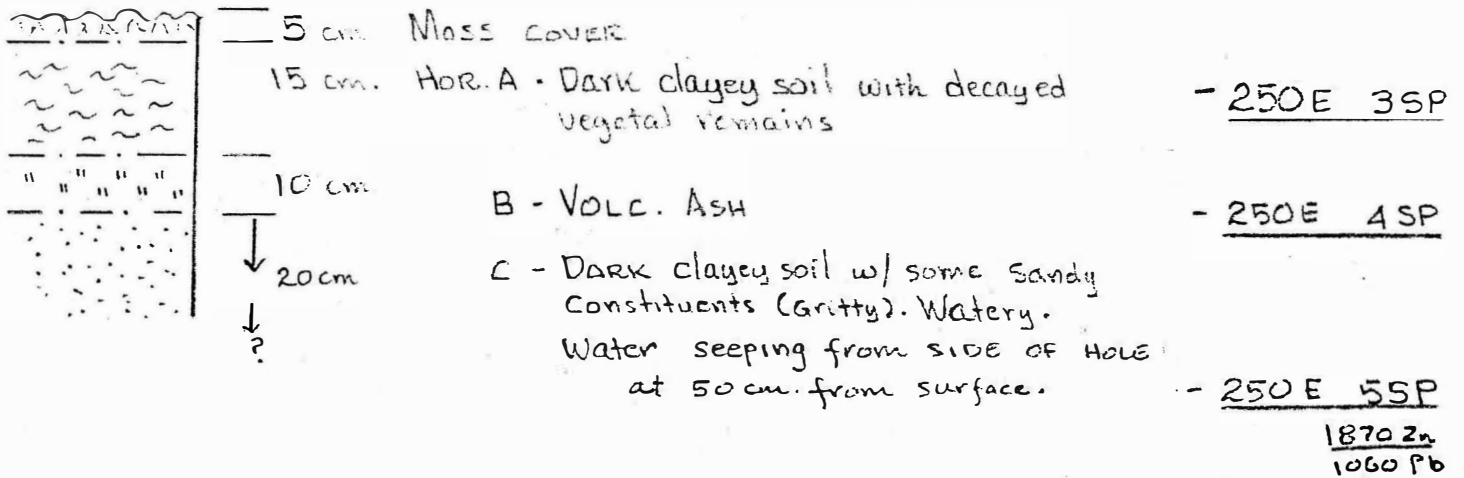 5 cm. Moss cover
15 cm. HOR. A. Dark clayey soil with decayed - 250E 3SP
vegetal remains
10 cm
B - VOLC. ASH - 250E 4SP
20 cm C - DARK clayey soil w/ some Sandy
Constituents (Gritty). Watery.
? Water seeping from SIDE OF HOLE
at 50 cm. from surface. - 250E 5SP
1870 Zn
1060 Pb